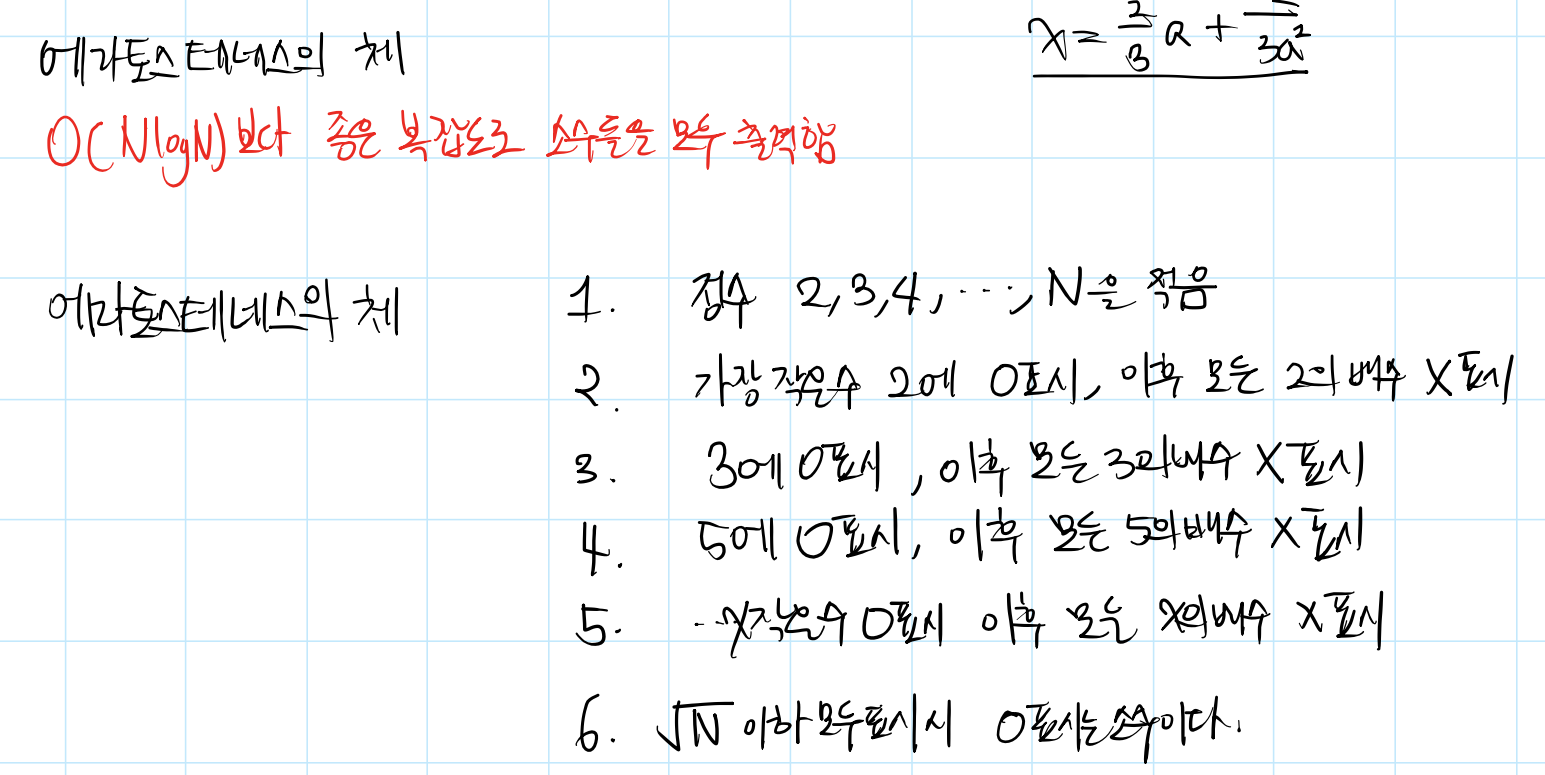 에라토스테네스의 체
x = 2/3 a + 3a²
O(NlogN)보다 좋은 복잡도로 소수들을 모두 출력함
에라토스테네스의 체
1. 정수 2,3,4, ..., N을 적음
2. 가장 작은수 2에 O표시, 이후 모든 2의 배수 X 표시
3. 3에 O표시, 이후 모든 3의배수 X 표시
4. 5에 O표시, 이후 모든 5의배수 X 표시
5. ..x작은수 O표시 이후 모든 x의배수 X 표시
6. √N 이하 모두표시시 O표시는소수이다.